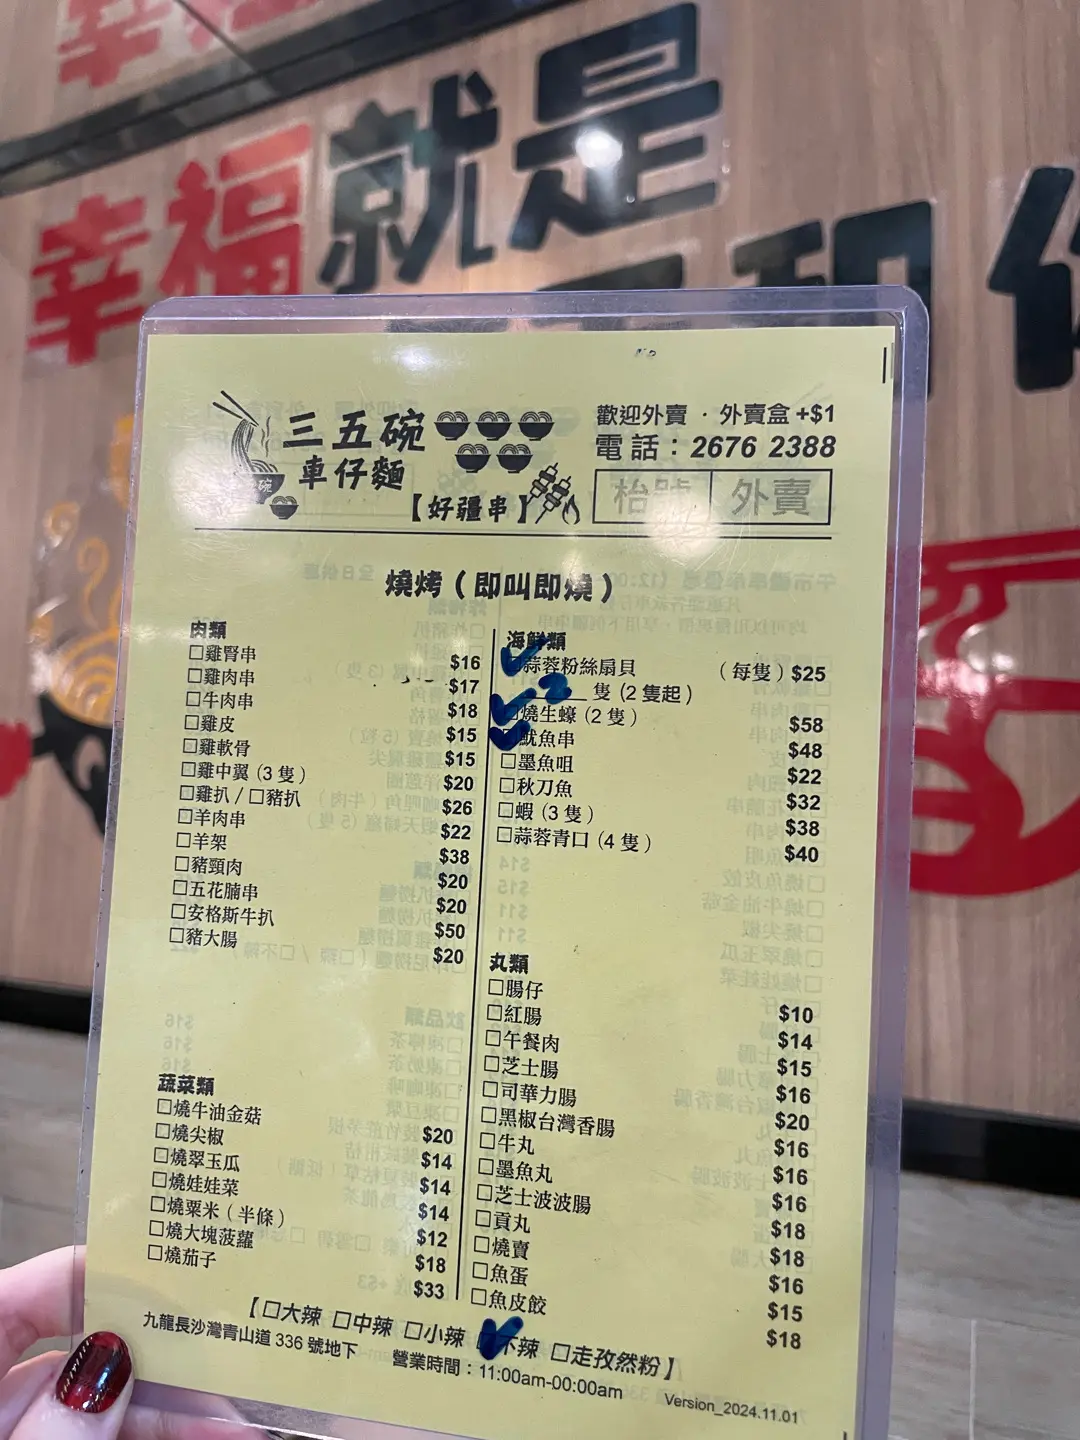 幸福就是
三五碗
車仔麵
【好疆串】
歡迎外賣 · 外賣盒 +$1
電話：2676 2388
枱號 外賣
燒烤（即叫即燒）
肉類
□雞腎串 $16
□雞肉串 $17
□牛肉串 $18
□雞皮 $15
□雞軟骨 $15
□雞中翼 (3 隻) $20
□雞扒 / □豬扒 $26
□羊肉串 $22
□羊架 $38
□豬頸肉 $20
□五花腩串 $20
□安格斯牛扒 $50
□豬大腸 $20
蔬菜類
□燒牛油金菇 $20
□燒尖椒 $14
□燒翠玉瓜 $14
□燒娃娃菜 $14
□燒粟米（半條） $12
□燒大塊菠蘿 $18
□燒茄子 $33
海鮮類
□蒜蓉粉絲扇貝 （每隻）$25
2 隻 (2 隻起)
□燒生蠔 (2 隻) $58
□魷魚串 $48
□墨魚咀 $22
□秋刀魚 $32
□蝦 (3 隻) $38
□蒜蓉青口 (4 隻) $40
丸類
□腸仔 $10
□紅腸 $14
□午餐肉 $15
□芝士腸 $16
□司華力腸 $20
□黑椒台灣香腸 $16
□牛丸 $16
□墨魚丸 $16
□芝士波波腸 $18
□貢丸 $18
□燒賣 $16
□魚蛋 $15
□魚皮餃 $18
【□大辣 □中辣 □小辣 □不辣 □走孜然粉】
九龍長沙灣青山道 336 號地下 營業時間：11:00am-00:00am
Version_2024.11.01